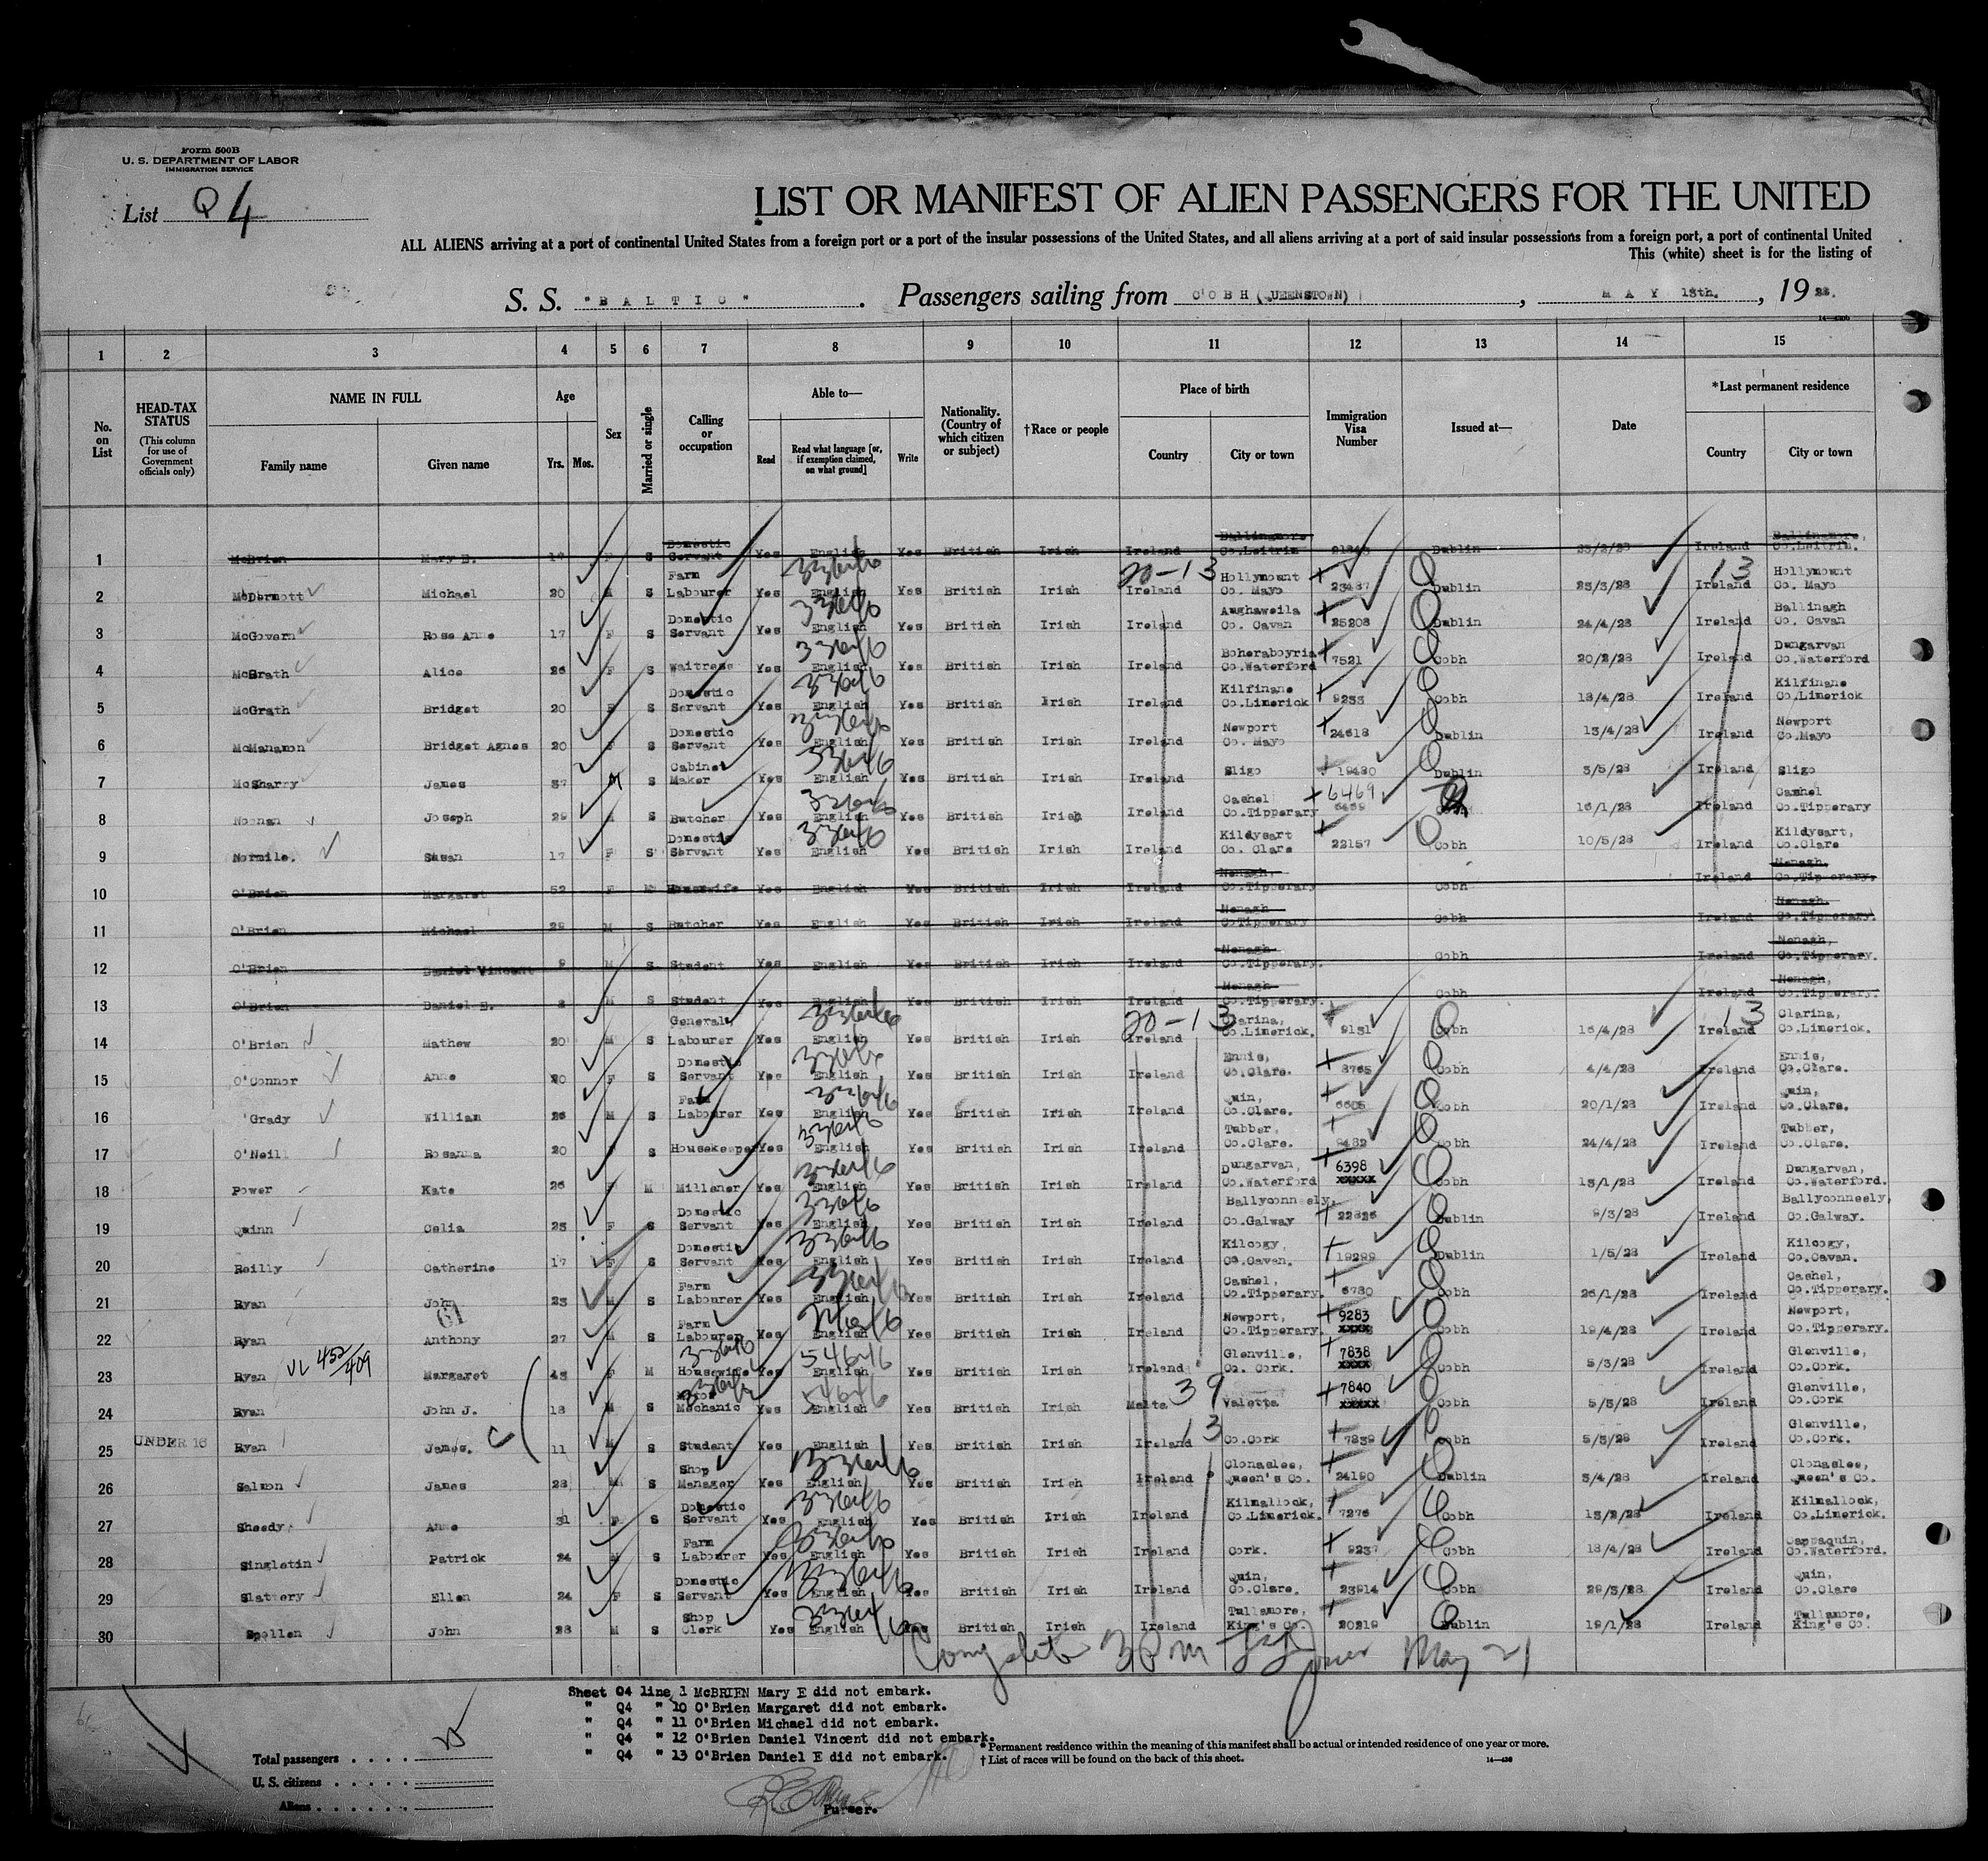 Form 500B
U. S. DEPARTMENT OF LABOR
IMMIGRATION SERVICE
List Q 4
LIST OR MANIFEST OF ALIEN PASSENGERS FOR THE UNITED
ALL ALIENS arriving at a port of continental United States from a foreign port or a port of the insular possessions of the United States, and all aliens arriving at a port of said insular possessions from a foreign port, a port of continental United
This (white) sheet is for the listing of
S. S. "BALTIC". Passengers sailing from C'OBH (QUEENSTOWN), MAY 13th., 1928.
1 2 3 4 5 6 7 8 9 10 11 12 13 14 15
No. on List
HEAD-TAX STATUS (This column for use of Government officials only)
NAME IN FULL Family name Given name
Age Yrs. Mos.
Sex
Married or single
Calling or occupation
Able to— Read Read what language [or, if exemption claimed, on what ground] Write
Nationality. (Country of which citizen or subject)
†Race or people
Place of birth Country City or town
Immigration Visa Number
Issued at—
Date
*Last permanent residence Country City or town
1 McBrien Mary E. F S Domestic Servant Yes English Yes British Irish Ireland Ballinamore Co.Leitrim Dublin Ireland Ballinamore, Co.Leitrim.
20-13 13
2 McDermott Michael 20 M S Farm Labourer Yes English Yes British Irish Ireland Hollymount Co. Mayo 23487 Dublin 23/3/28 Ireland Hollymount Co. Mayo
3 McGovern Rose Anne 17 F S Domestic Servant Yes English Yes British Irish Ireland Aughaweila Co. Cavan 25208 Dublin 24/4/28 Ireland Ballinagh Co. Cavan
4 McGrath Alice 26 F S Waitress Yes English Yes British Irish Ireland Boheraboyria Co.Waterford 7521 Cobh 20/2/28 Ireland Dungarvan Co.Waterford
5 McGrath Bridget 20 F S Domestic Servant Yes English Yes British Irish Ireland Kilfinane Co.Limerick 9233 Cobh 18/4/28 Ireland Kilfinane Co.Limerick
6 McManamon Bridget Agnes 20 F S Domestic Servant Yes English Yes British Irish Ireland Newport Co. Mayo 24618 Dublin 13/4/28 Ireland Newport Co.Mayo
7 McSharry James 37 M S Cabinet Maker Yes English Yes British Irish Ireland Sligo 19430 Dublin 3/5/28 Ireland Sligo
8 Noonan Joseph 29 M S Butcher Yes English Yes British Irish Ireland Cashel Co.Tipperary 6469 16/1/28 Ireland Cashel Co.Tipperary
9 Normile. Susan 17 F S Domestic Servant Yes English Yes British Irish Ireland Kildysart Co. Clare 22157 Cobh 10/5/28 Ireland Kildysart, Co.Clare
10 O'Brien Margaret 52 F Housewife Yes English Yes British Irish Ireland Nenagh, Co.Tipperary Cobh Ireland Nenagh. Co.Tipperary.
11 O'Brien Michael 28 M S Butcher Yes English Yes British Irish Ireland Nenagh CoTipperary Cobh Ireland Nenagh. Co.Tipperary.
12 O'Brien Daniel Vincent 9 M S Student Yes English Yes British Irish Ireland Nenagh Co.Tipperary. Cobh Ireland Nenagh, Co.Tipperary.
13 O'Brien Daniel E. 8 M S Student Yes English Yes British Irish Ireland Nenagh Co.Tipperary. Cobh Ireland Nenagh, Co.Tipperary.
20-13 13
14 O'Brien Mathew 20 M S General Labourer Yes English Yes British Irish Ireland Clarina, Co.Limerick. 9131 Cobh 16/4/28 Ireland Clarina, Co.Limerick.
15 O'Connor Anne 20 F S Domestic Servant Yes English Yes British Irish Ireland Ennis, Co.Clare. 8765 Cobh 4/4/28 Ireland Ennis, Co.Clare.
16 'Grady William 26 M S Farm Labourer Yes English Yes British Irish Ireland Quin, Co.Clare. 6605 Cobh 20/1/28 Ireland Quin, Co.Clare.
17 O'Neill Rosanna 20 F S Housekeeper Yes English Yes British Irish Ireland Tubber, Co.Clare. 9482 Cobh 24/4/28 Ireland Tubber, Co.Clare.
18 Power Kate 26 F M Milliner Yes English Yes British Irish Ireland Dungarvan, Co.Waterford 6398 xxxxx Cobh 13/1/28 Ireland Dungarvan, Co.Waterford.
19 Quinn Celia 23 F S Domestic Servant Yes English Yes British Irish Ireland Ballyconneely, Co.Galway 22826 Dublin 9/3/28 Ireland Ballyconneely, Co.Galway.
20 Reilly Catherine 17 F S Domestic Servant Yes English Yes British Irish Ireland Kilcogy, Co.Cavan. 19299 Dublin 1/5/28 Ireland Kilcogy, Co.Cavan.
21 Ryan John 23 M S Farm Labourer Yes English Yes British Irish Ireland Cashel, Co.Tipperary. 6780 Cobh 26/1/28 Ireland Cashel, Co.Tipperary.
22 Ryan Anthony 27 M S Farm Labourer Yes English Yes British Irish Ireland Newport, Co.Tipperary. 9283 xxxx Cobh 19/4/28 Ireland Newport, Co.Tipperary.
23 Ryan Margaret 43 F M Housewife Yes English Yes British Irish Ireland Glenville, Co. Cork. 7838 xxxx Cobh 5/3/28 Ireland Glenville, Co.Cork.
39
24 Ryan John J. 18 M S Mechanic Yes English Yes British Irish Malta Valetta 7840 xxxxx Cobh 5/3/28 Ireland Glenville, Co.Cork
13
25 UNDER 16 Ryan James. 11 M S Student Yes English Yes British Irish Ireland Co.Cork 7839 Cobh 5/3/28 Ireland Glenville, Co.Cork.
26 Salmon James 28 M S Shop Manager Yes English Yes British Irish Ireland Clonaslee, Queen's Co. 24190 Dublin 3/4/28 Ireland Clonaslee, Queen's Co.
27 Sheedy. Anne 31 F S Domestic Servant Yes English Yes British Irish Ireland Kilmallock, Co.Limerick. 7276 Cobh 13/2/28 Ireland Kilmallock, Co.Limerick.
28 Singletin Patrick 24 M S Farm Labourer Yes English Yes British Irish Ireland Cork. 9237 Cobh 18/4/28 Ireland Cappaquin, Co.Waterford.
29 Slattery Ellen 24 F S Domestic Servant Yes English Yes British Irish Ireland Quin, Co.Clare. 23914 Cobh 29/3/28 Ireland Quin, Co.Clare
30 Spollen John 28 M S Shop Clerk Yes English Yes British Irish Ireland Tullamore, King's Co. 20219 Dublin 19/1/28 Ireland Tullamore, King's Co.
Complete 3 P m May 21
Sheet Q4 line 1 McBRIEN Mary E did not embark.
" Q4 " 10 O'Brien Margaret did not embark.
" Q4 " 11 O'Brien Michael did not embark.
" Q4 " 12 O'Brien Daniel Vincent did not embark.
" Q4 " 13 O'Brien Daniel E did not embark.
* Permanent residence within the meaning of this manifest shall be actual or intended residence of one year or more.
† List of races will be found on the back of this sheet.
Total passengers . . . . 25
U. S. citizens . . . . .
Aliens . . . . . .
Purser.